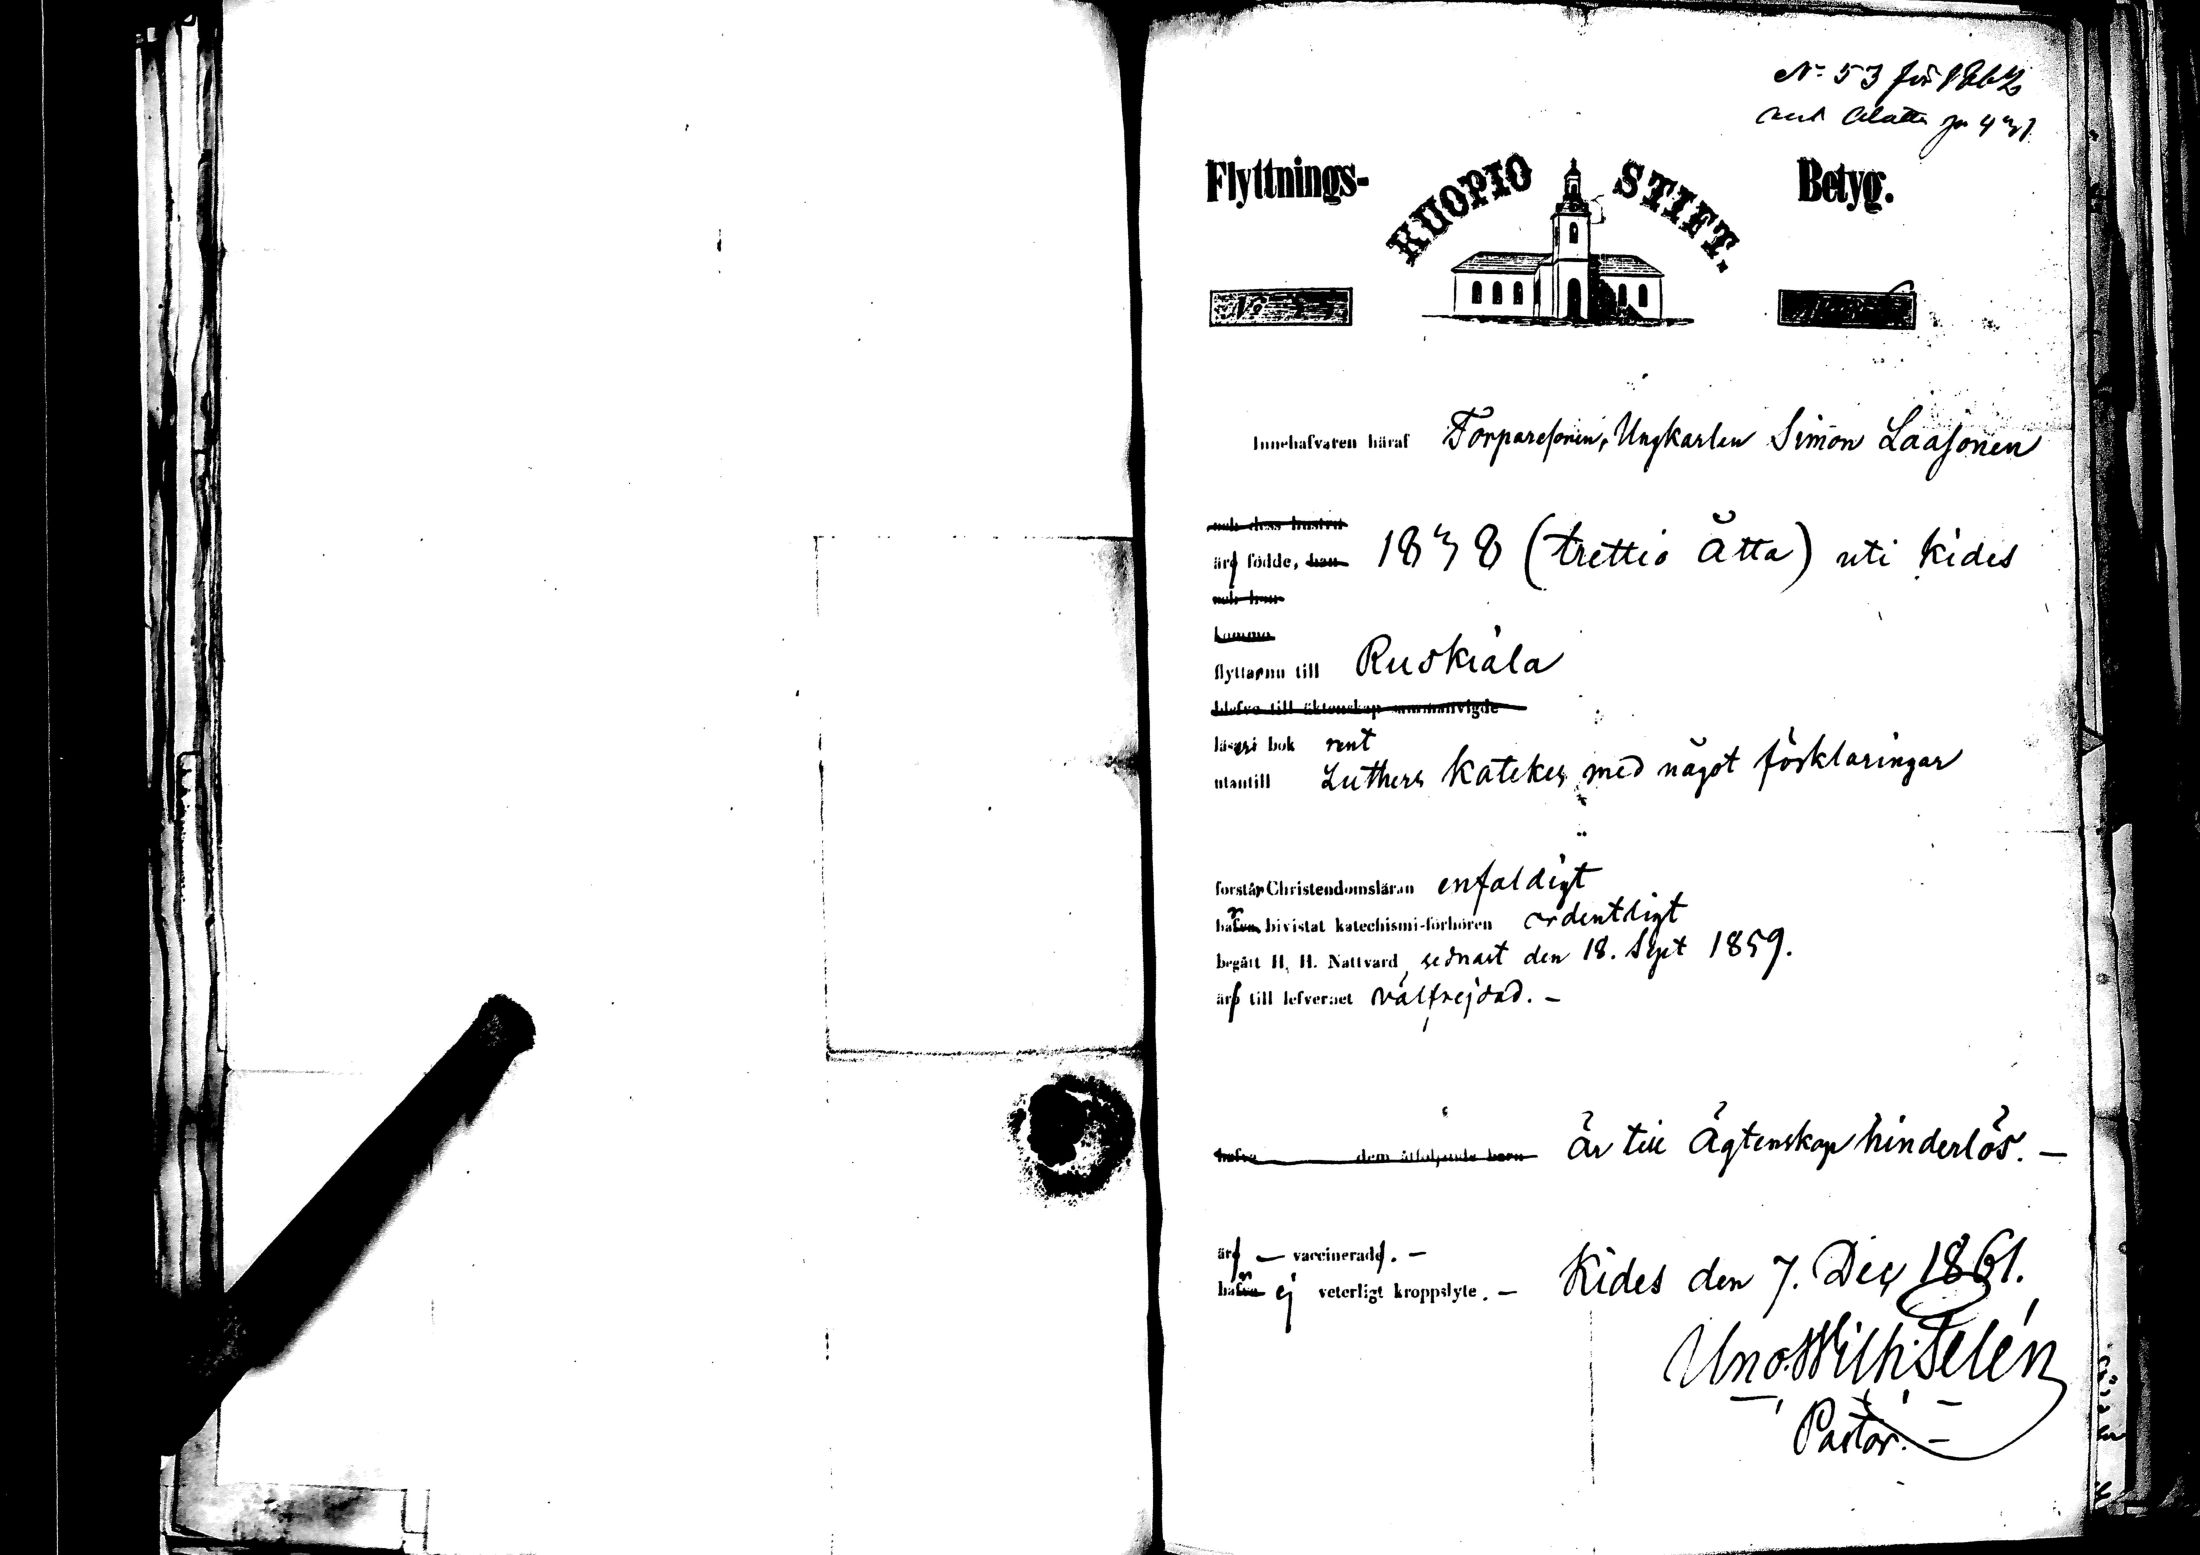 No 53 för 1862
Flyttnings- KUOPIO STIFT. Betyg.
No
Innehafvaren häraf Torparesonen, Ungkarlen Simon Laasonen
och dess hustru
äro födde, han 1838 (trettio åtta) uti Kides
och hon
komma
flytta nu till Ruskiala
blefvo till äktenskap sammanvigde
läser i bok rent
utantill Luthers Katekes med något förklaringar
förstår Christendomsläran enfaldigt
har bivistat katechismi-förhören ordentligt
begått H. H. Nattvard sednast den 18. Sept 1859.
är till lefvernet välfrejdad. —
hafva dem åtföljande barn är till Ägtenskap hinderlös. —
är — vaccinerad. —
har ej veterligt kroppslyte. — Kides den 7. Dec 1861.
Uno Wilh: Telén
Pastor. —